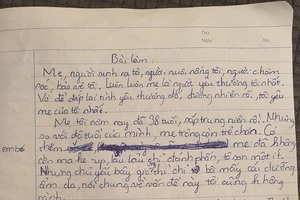 Thứ
Ngày
No.
Bài làm:
Mẹ, người sinh ra tôi, người nuôi nấng tôi, người chăm
sóc, bảo vệ tôi. Luôn luôn mẹ là người yêu thương tôi nhất.
Và để đáp lại tình yêu thương đó, đương nhiên rồi, tôi yêu
mẹ của tôi nhất.
Mẹ tôi năm nay đã 38 tuổi, sắp trung niên rồi. Nhưng
so với độ tuổi của mình, mẹ trông còn trẻ chán. Có
em bé
thêm mẹ đã không
cần ma ke-up, lâu lâu chỉ đánh phấn, tô son một ít.
Nhưng chủ yếu bây giờ thì chỉ bô mấy cái dưỡng
ẩm da, nói chung về vấn đề này tôi cũng không